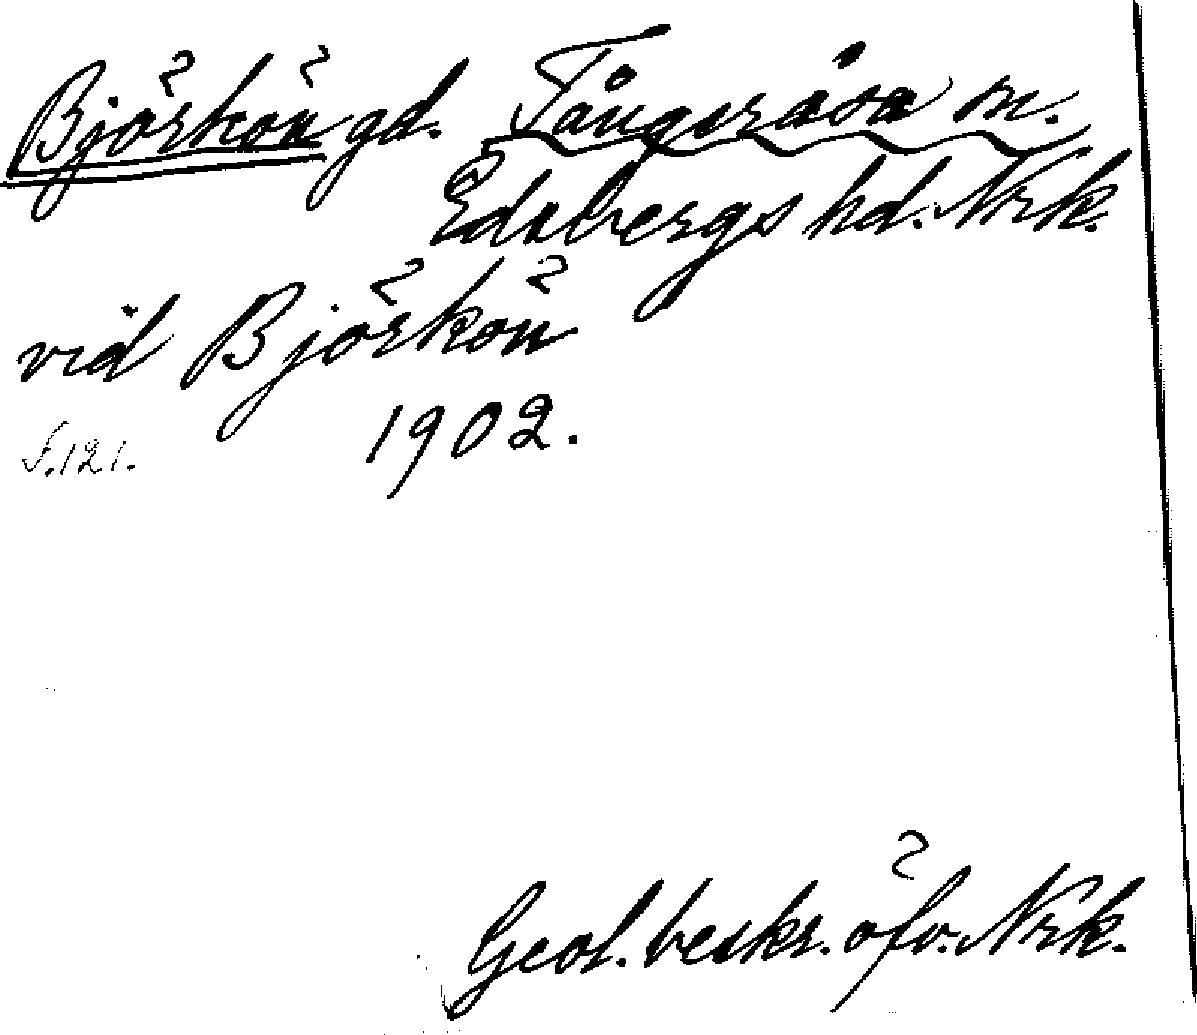 Björkön gd. Tångeråsa sn.
Edsbergs hd. Nrk.
vid Björkön
1902.
S. 121.
Geol. beskr. öfv. Nrk.